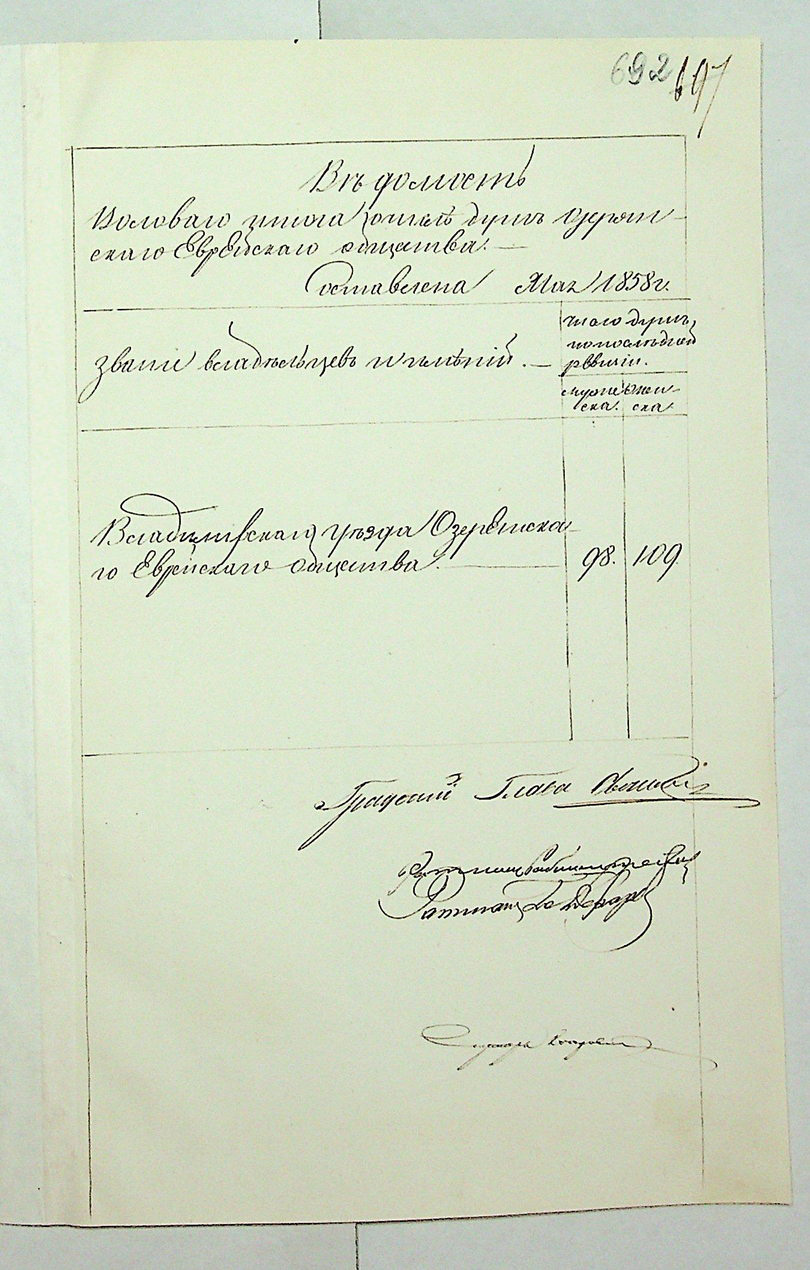 692 697
Вѣдомость
Воловаго итога о числѣ душъ Озерян-
скаго Еврейскаго общества. —
Составлена Мая 1858 г.
Званіе владѣльцевъ и имѣній. —
число душъ
по послѣдней
ревизіи.
мужес- женс-
ска. ска.
Владимірскаго уѣзда Озерянска-
го Еврейскаго общества. 98. 109.
Градскій Глава
Ратманъ
Ратманъ